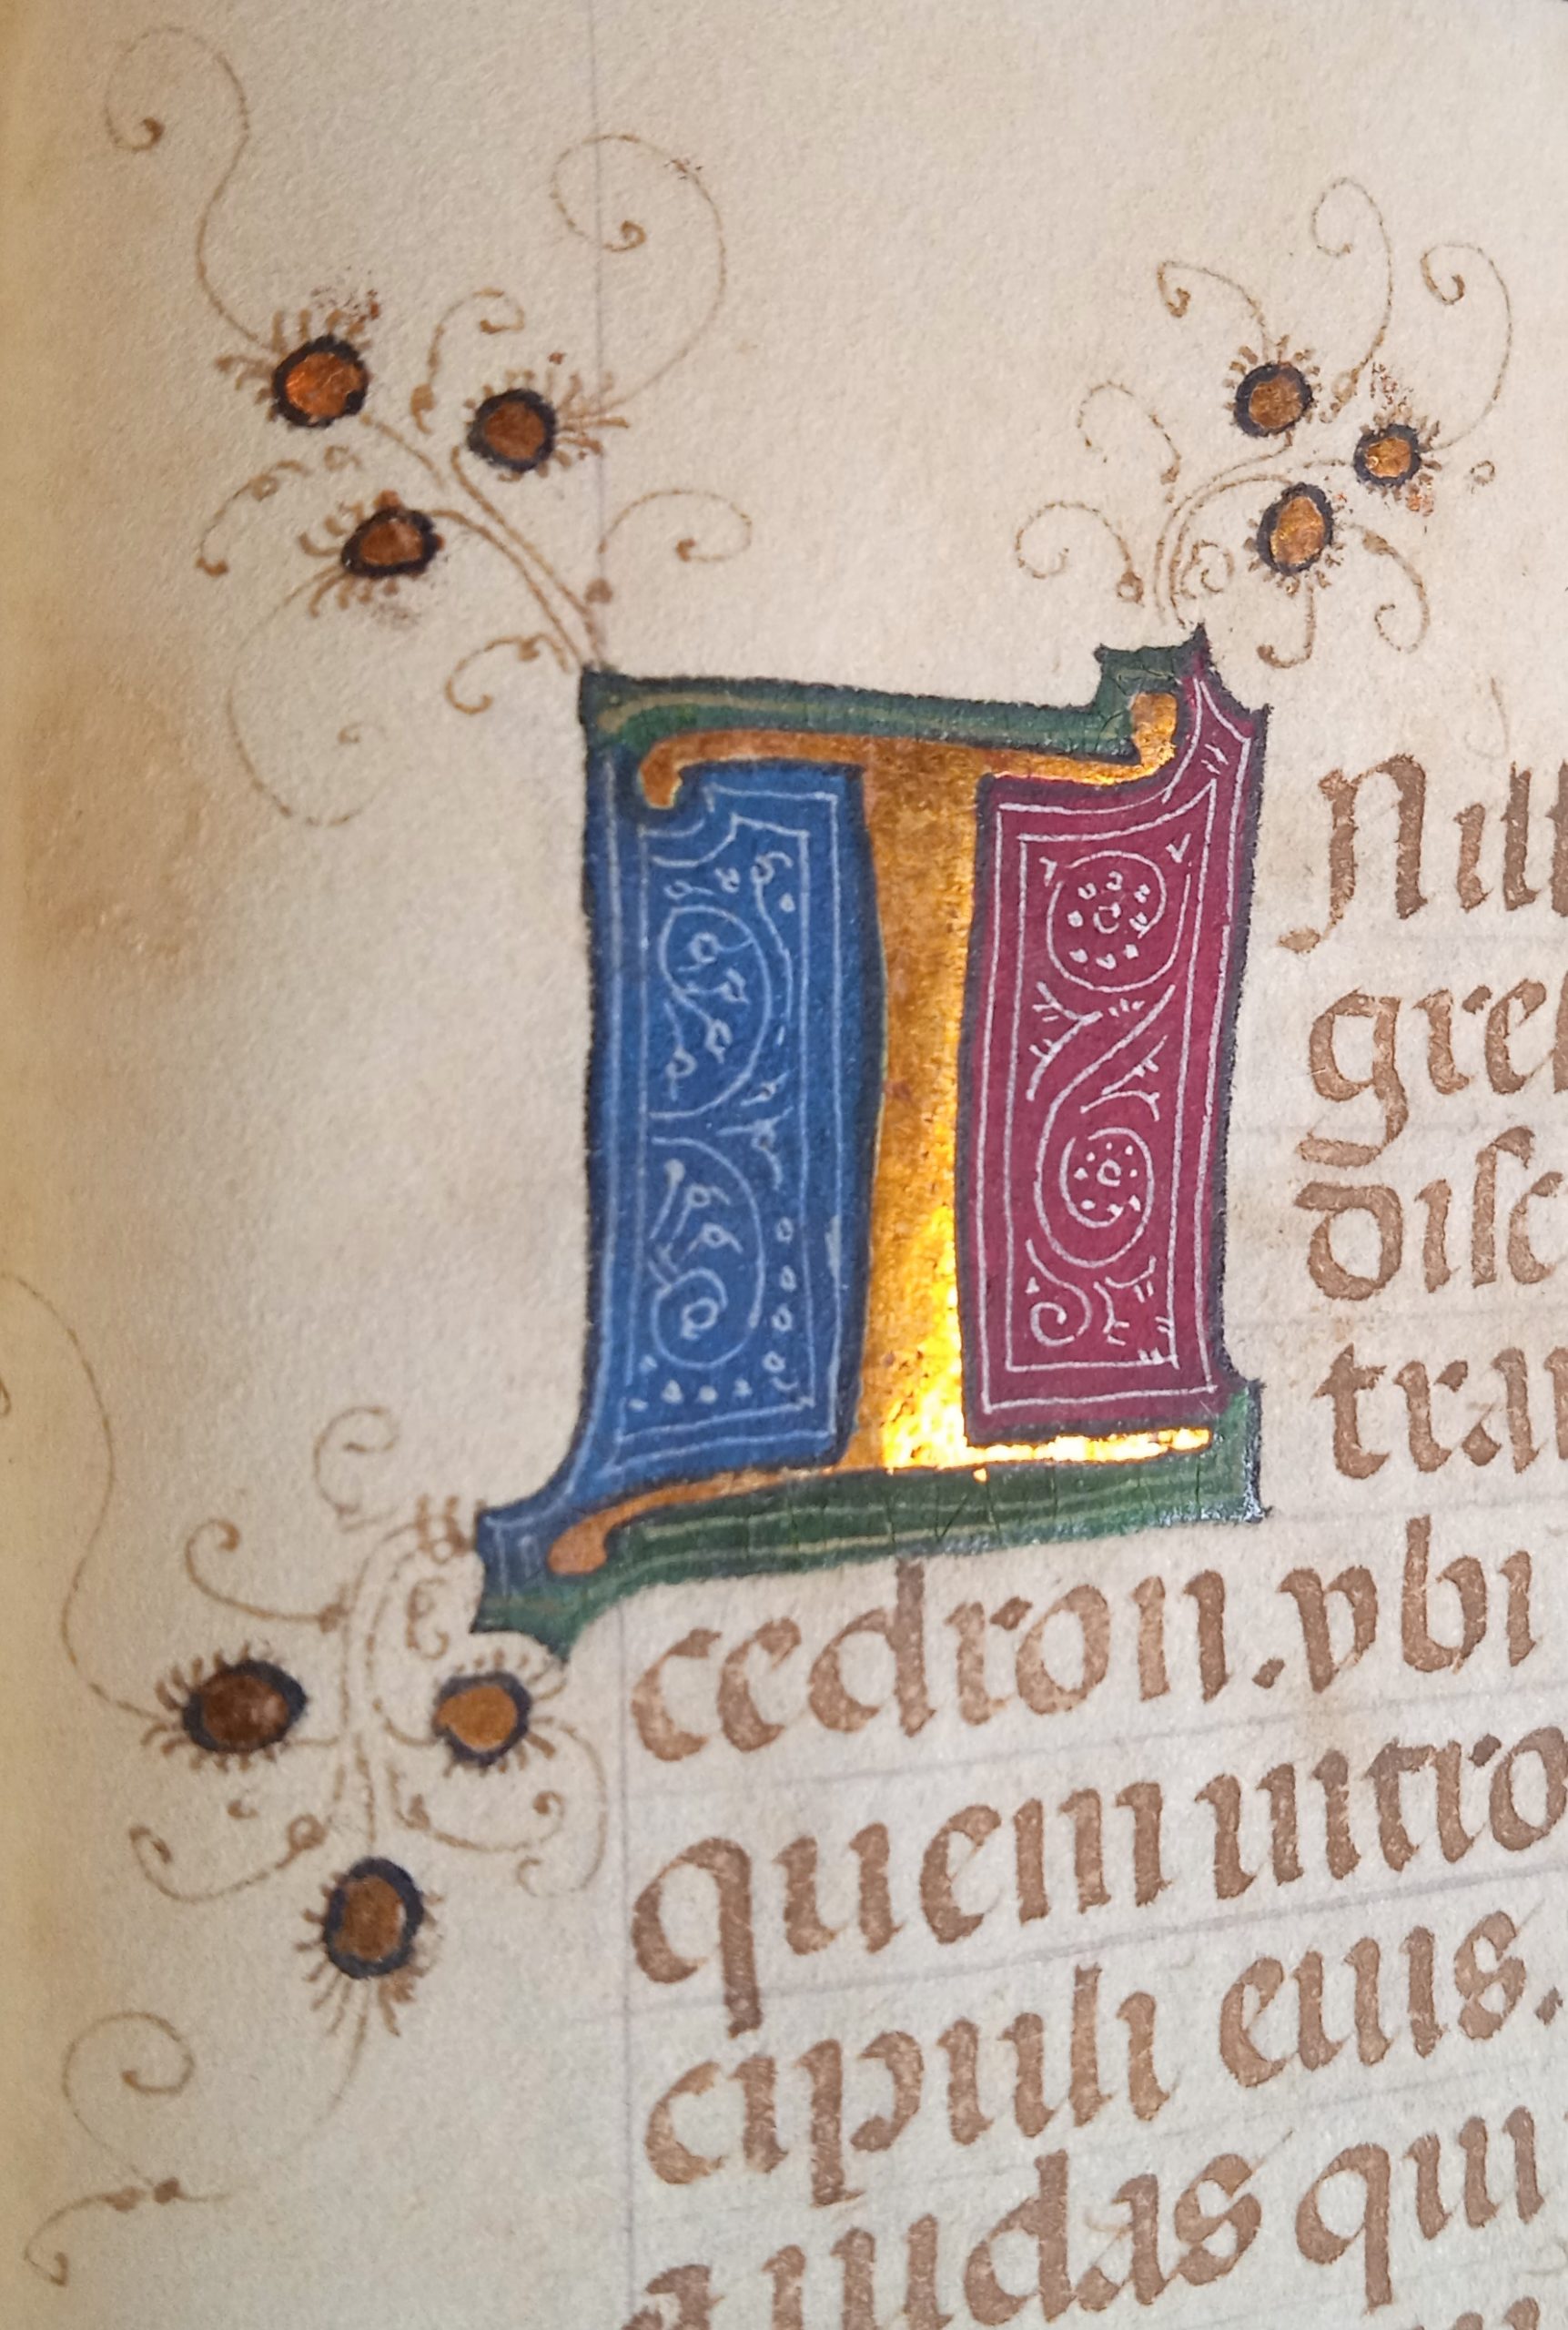 I Nill
gre
disc
tran
cedron.vbi
quem intro
cipuli eius.
iudas qui